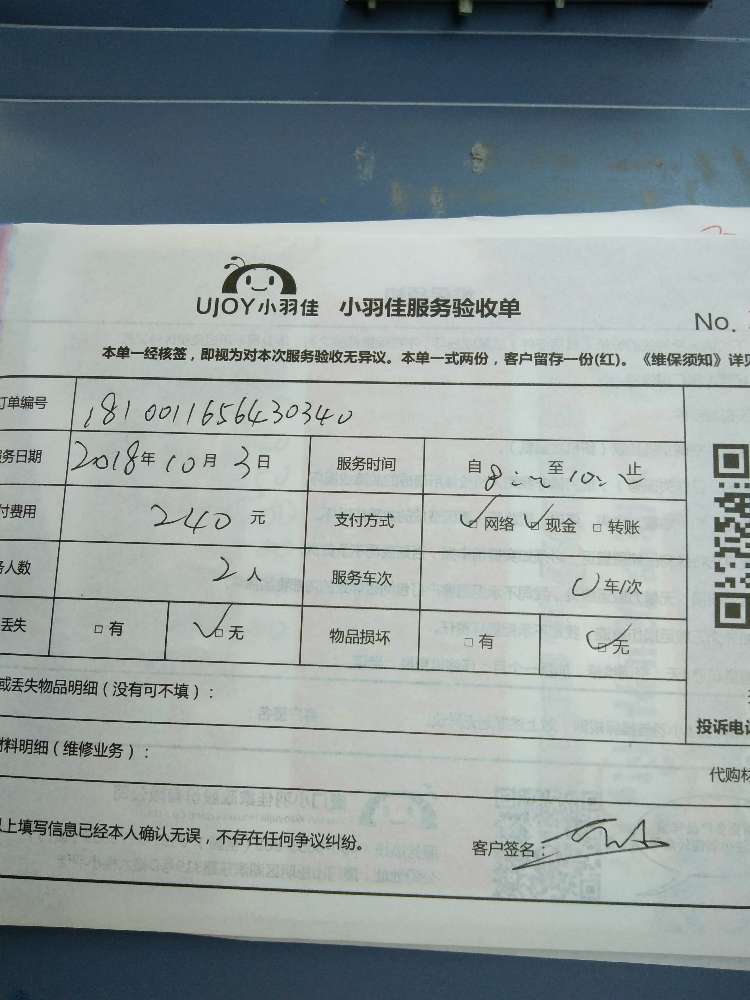 UJOY小羽佳 小羽佳服务验收单
No.
本单一经核签，即视为对本次服务验收无异议。本单一式两份，客户留存一份(红)。《维保须知》详见
订单编号 1810011656430340
服务日期 2018年10月3日 服务时间 自8:00至10:00止
付费用 240元 支付方式 ☑网络 ☑现金 □转账
务人数 2人 服务车次 0车/次
丢失 □有 ☑无 物品损坏 □有 ☑无
或丢失物品明细（没有可不填）：
投诉电话
材料明细（维修业务）：
代购材
以上填写信息已经本人确认无误，不存在任何争议纠纷。 客户签名：